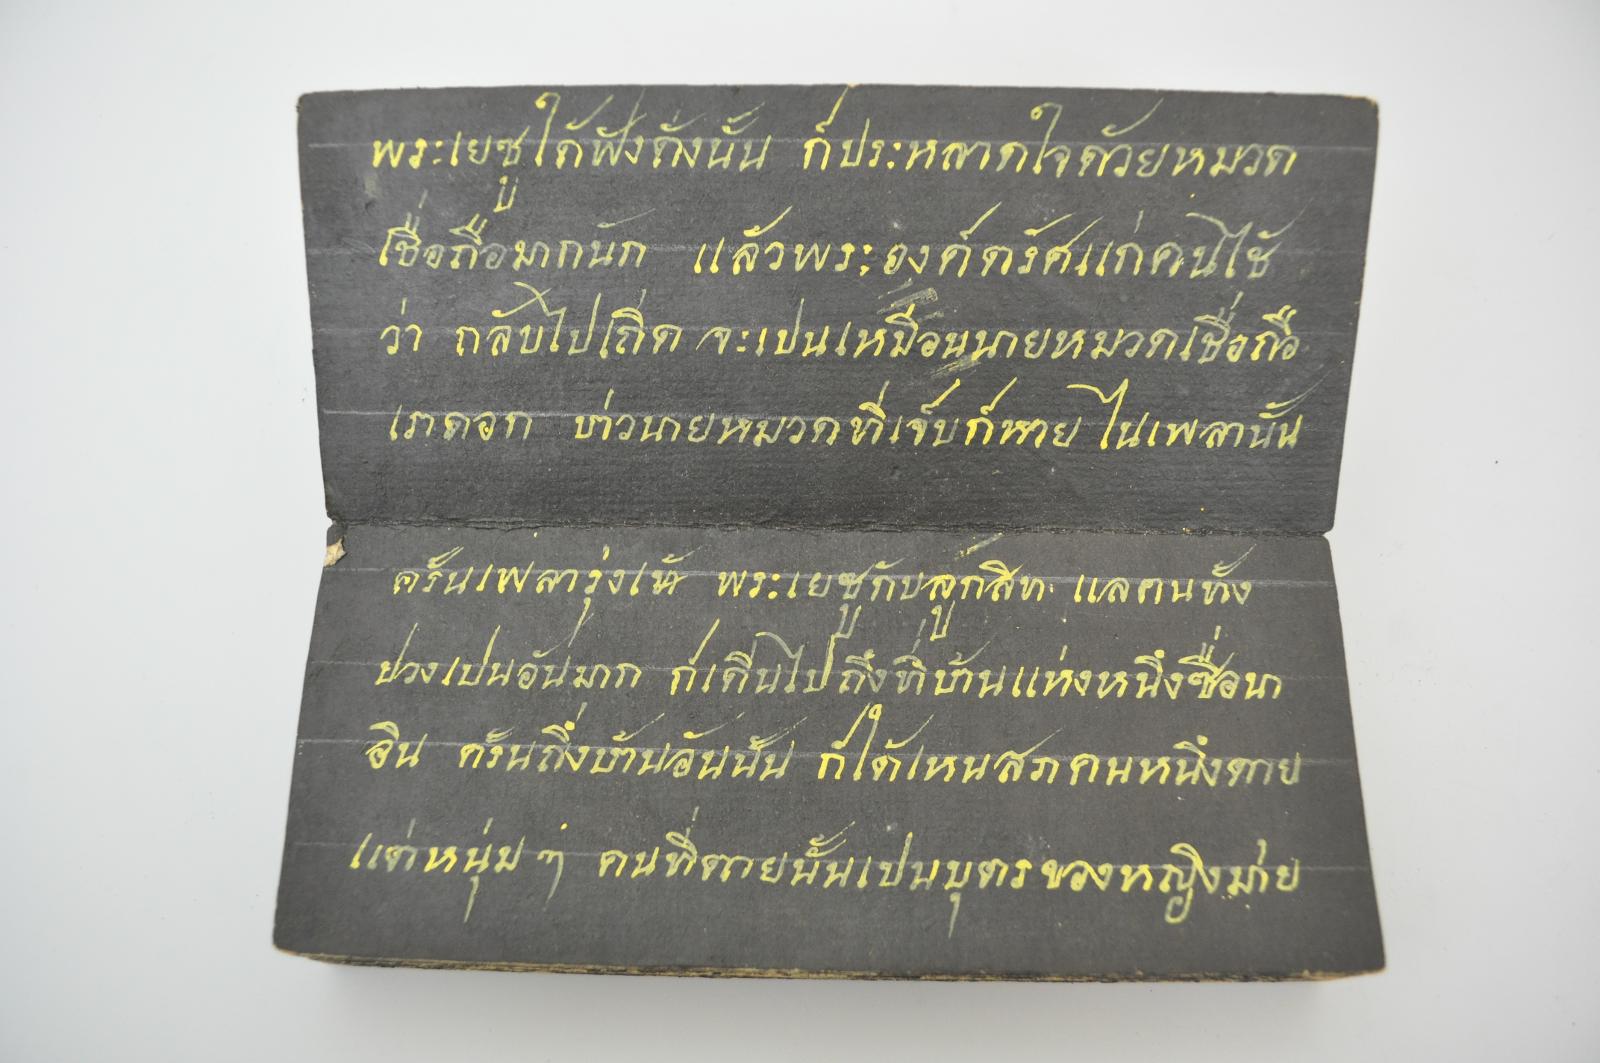 พระเยซูได้ฟังดั่งนั้น ก็ประหลาดใจด้วยหมวด
เชื่อถือมากนัก แล้วพระองค์ตรัศแก่คนไช้
ว่า กลับไปเถิด จะเปนเหมือนนายหมวดเชื่อถือ
เราดอก บ่าวนายหมวดที่เจ็บก็หาย ไนเพลานั้น
ครั้นเพลารุ่งเช้า พระเยซูกับลูกสิท แลคนทั้ง
ปวงเปนอันมาก ก็เดินไปถึงที่บ้านแห่งหนึ่งชื่อนา
อิน ครั้นถึงบ้านอันนั้น ก็ได้เหนสภคนหนึ่งตาย
แต่หนุ่ม ๆ คนที่ตายนั้นเปนบุตรของหญิงม่าย